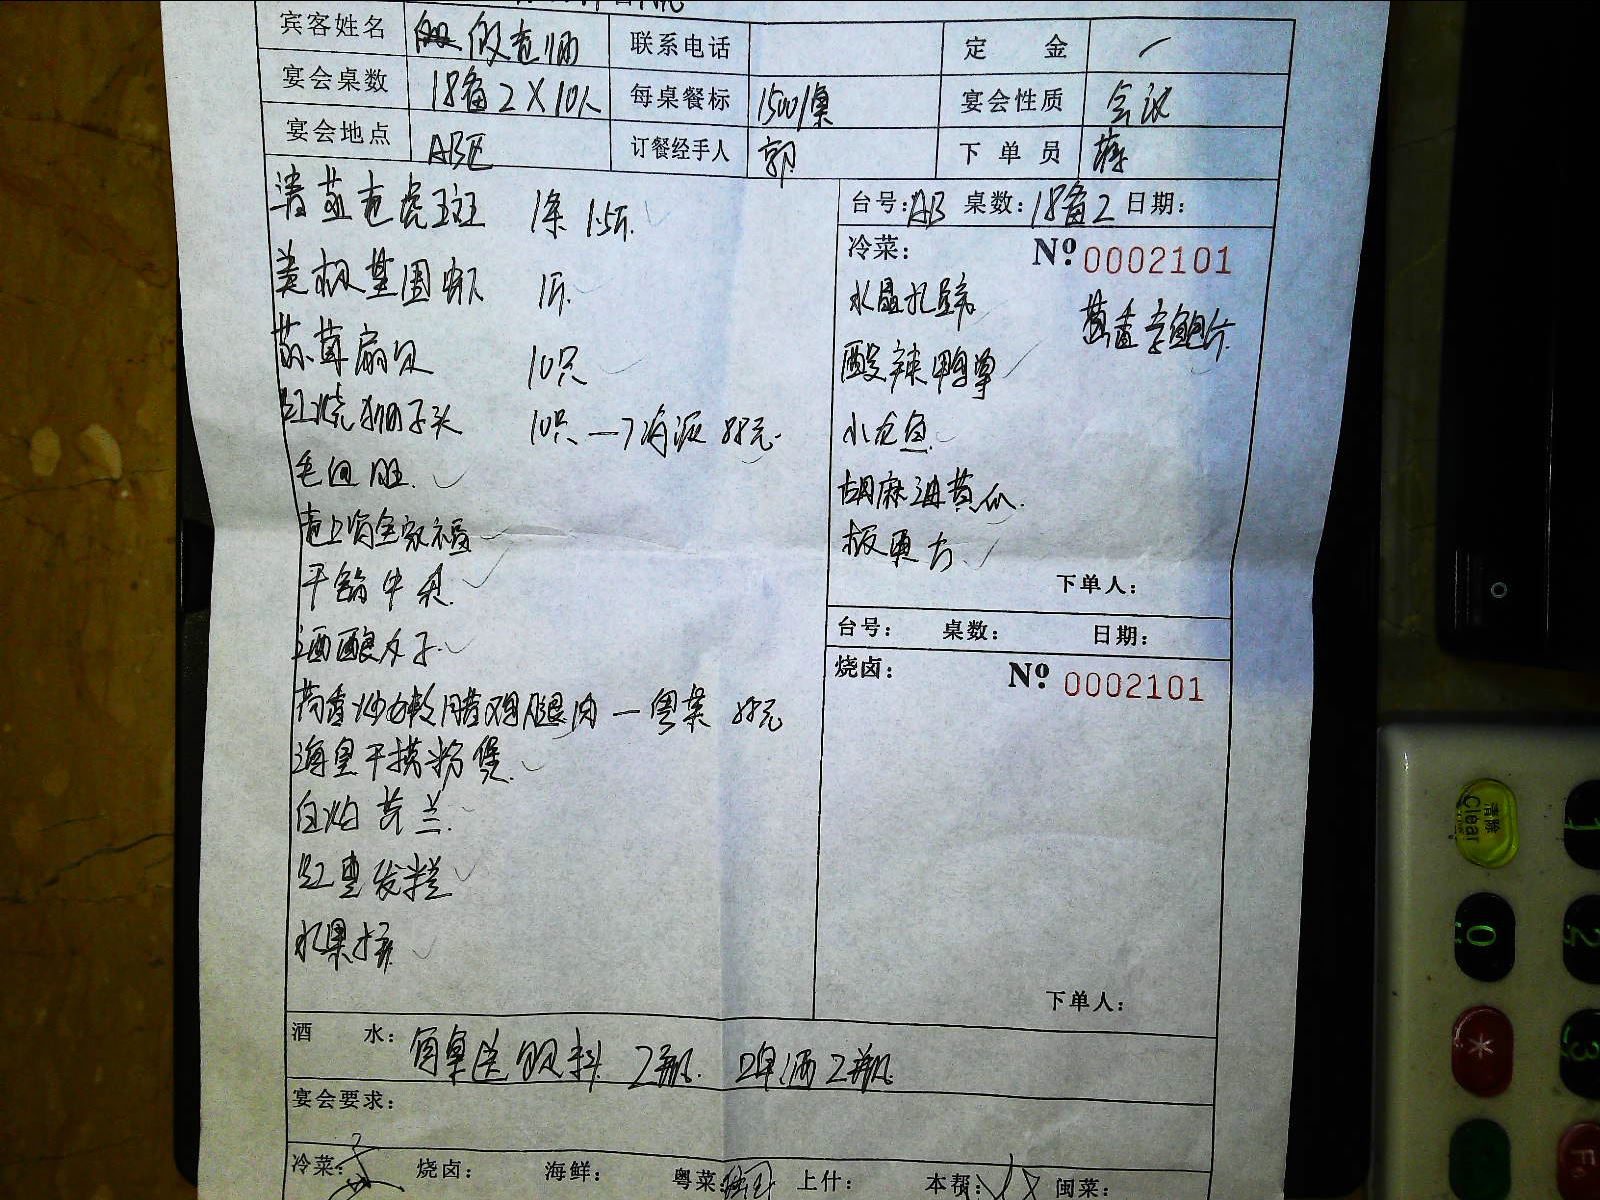 宾客姓名 联系电话 定 金
宴会桌数 18备2×10人 每桌餐标 1500/桌 宴会性质 会议
宴会地点 AB区 订餐经手人 郭 下单员
清蒸老虎斑 1条 1.5斤
台号: AB 桌数: 18备2 日期:
冷菜: Nº 0002101
美极基围虾 1斤
水晶扎蹄
蒜茸扇贝 10只
酸辣鸭
红烧狮子头 10只
小
毛血旺
胡麻油黄瓜
上海全家福
干锅牛
下单人:
酒酿丸子
台号: 桌数: 日期:
烧卤: Nº 0002101
腿肉 — 粤菜
海皇干捞粉煲
白灼芥兰
红枣发糕
水果拼
下单人:
酒 水: 每桌送饮料 2瓶. 啤酒2瓶
宴会要求:
冷菜: 烧卤: 海鲜: 粤菜: 上什: 本帮: 闽菜:
清除
Clear
1
0
2
*
3